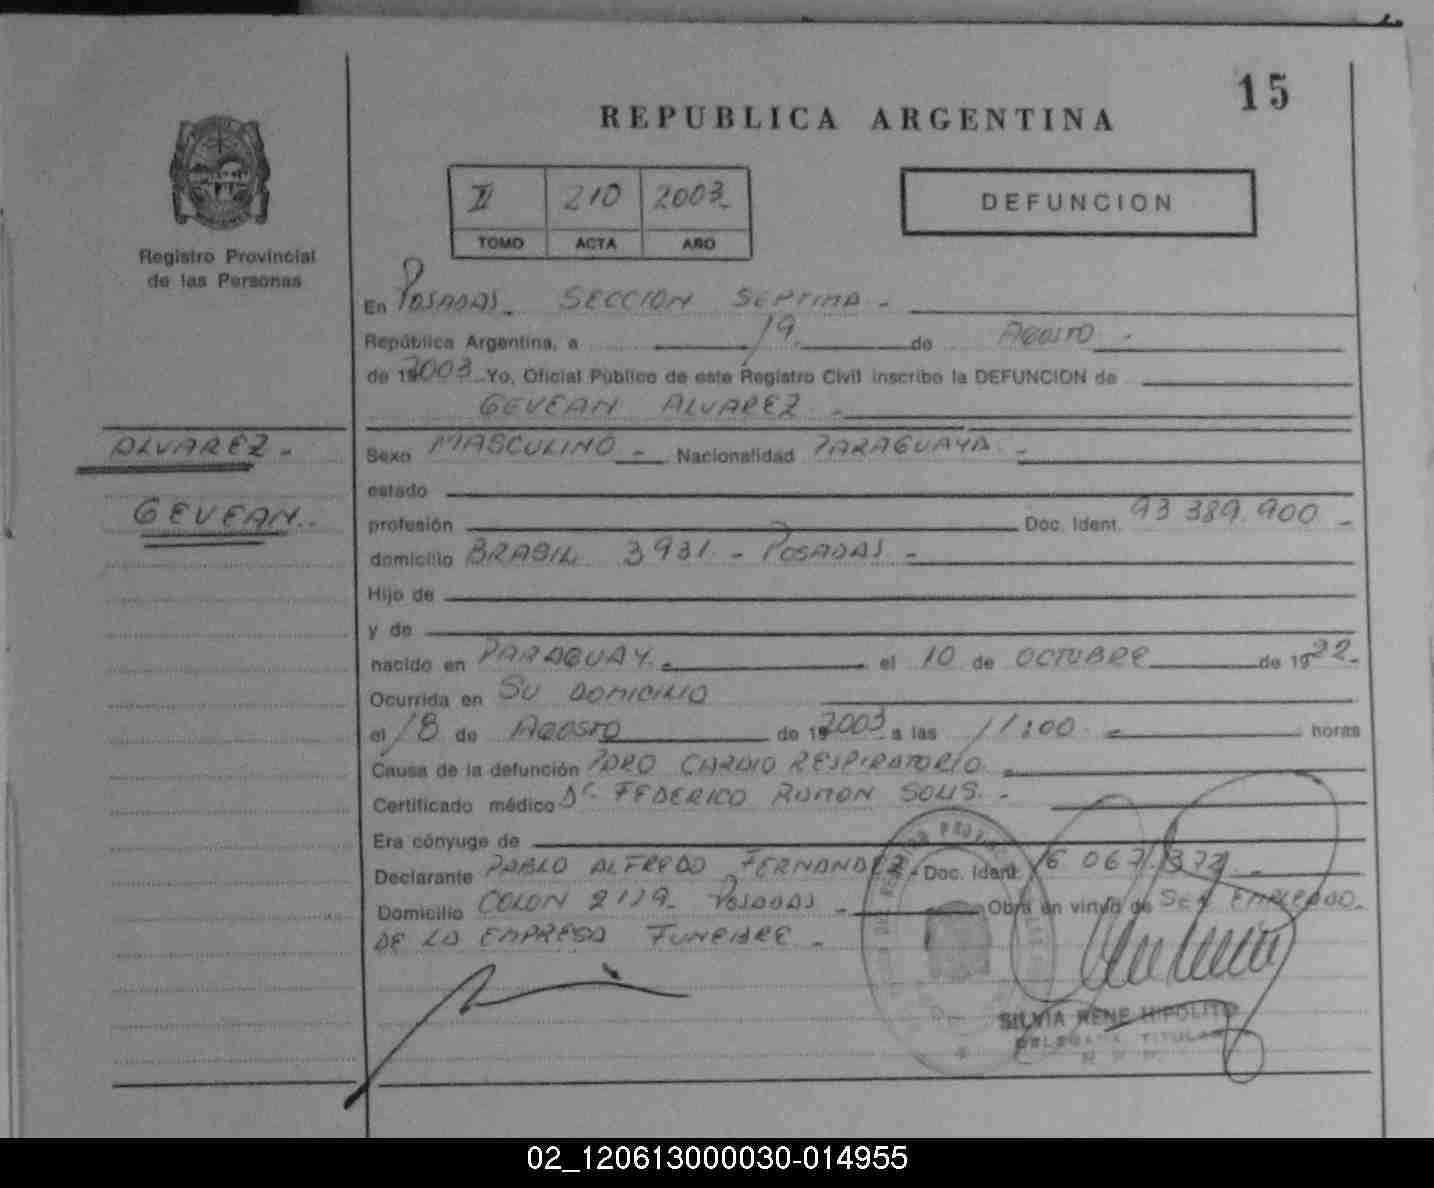 15
REPUBLICA ARGENTINA
II 210 2003
TOMO ACTA AÑO
DEFUNCION
Registro Provincial
de las Personas
ALVAREZ.-
GEVEAN..
En POSADAS. SECCION SEPTIMA -
República Argentina, a 19. de AGOSTO -
de 19 2003 Yo, Oficial Público de este Registro Civil inscribo la DEFUNCION de
GEVEAN ALVAREZ -
Sexo MASCULINO - Nacionalidad PARAGUAYA -
estado
profesión Doc. Ident. 93 389.900 -
domicilio BRASIL 3931 - POSADAS -
Hijo de
y de
nacido en PARAGUAY. el 10 de OCTUBRE de 1922.-
Ocurrida en SU DOMICILIO
el 18 de AGOSTO de 19 2003 a las 11:00 horas
Causa de la defunción PARO CARDIO RESPIRATORIO
Certificado médico Dr. FEDERICO RAMON SOLIS. -
Era cónyuge de
Declarante PABLO ALFREDO FERNANDEZ - Doc. Ident. 16 067.372. -
Domicilio COLON 2119. POSADAS - Obra en virtud de SER EMPLEADO
DE LA EMPRESA FUNEBRE -
SILVIA RENE HIPOLITO
DELEGADA TITULAR
02_120613000030-014955